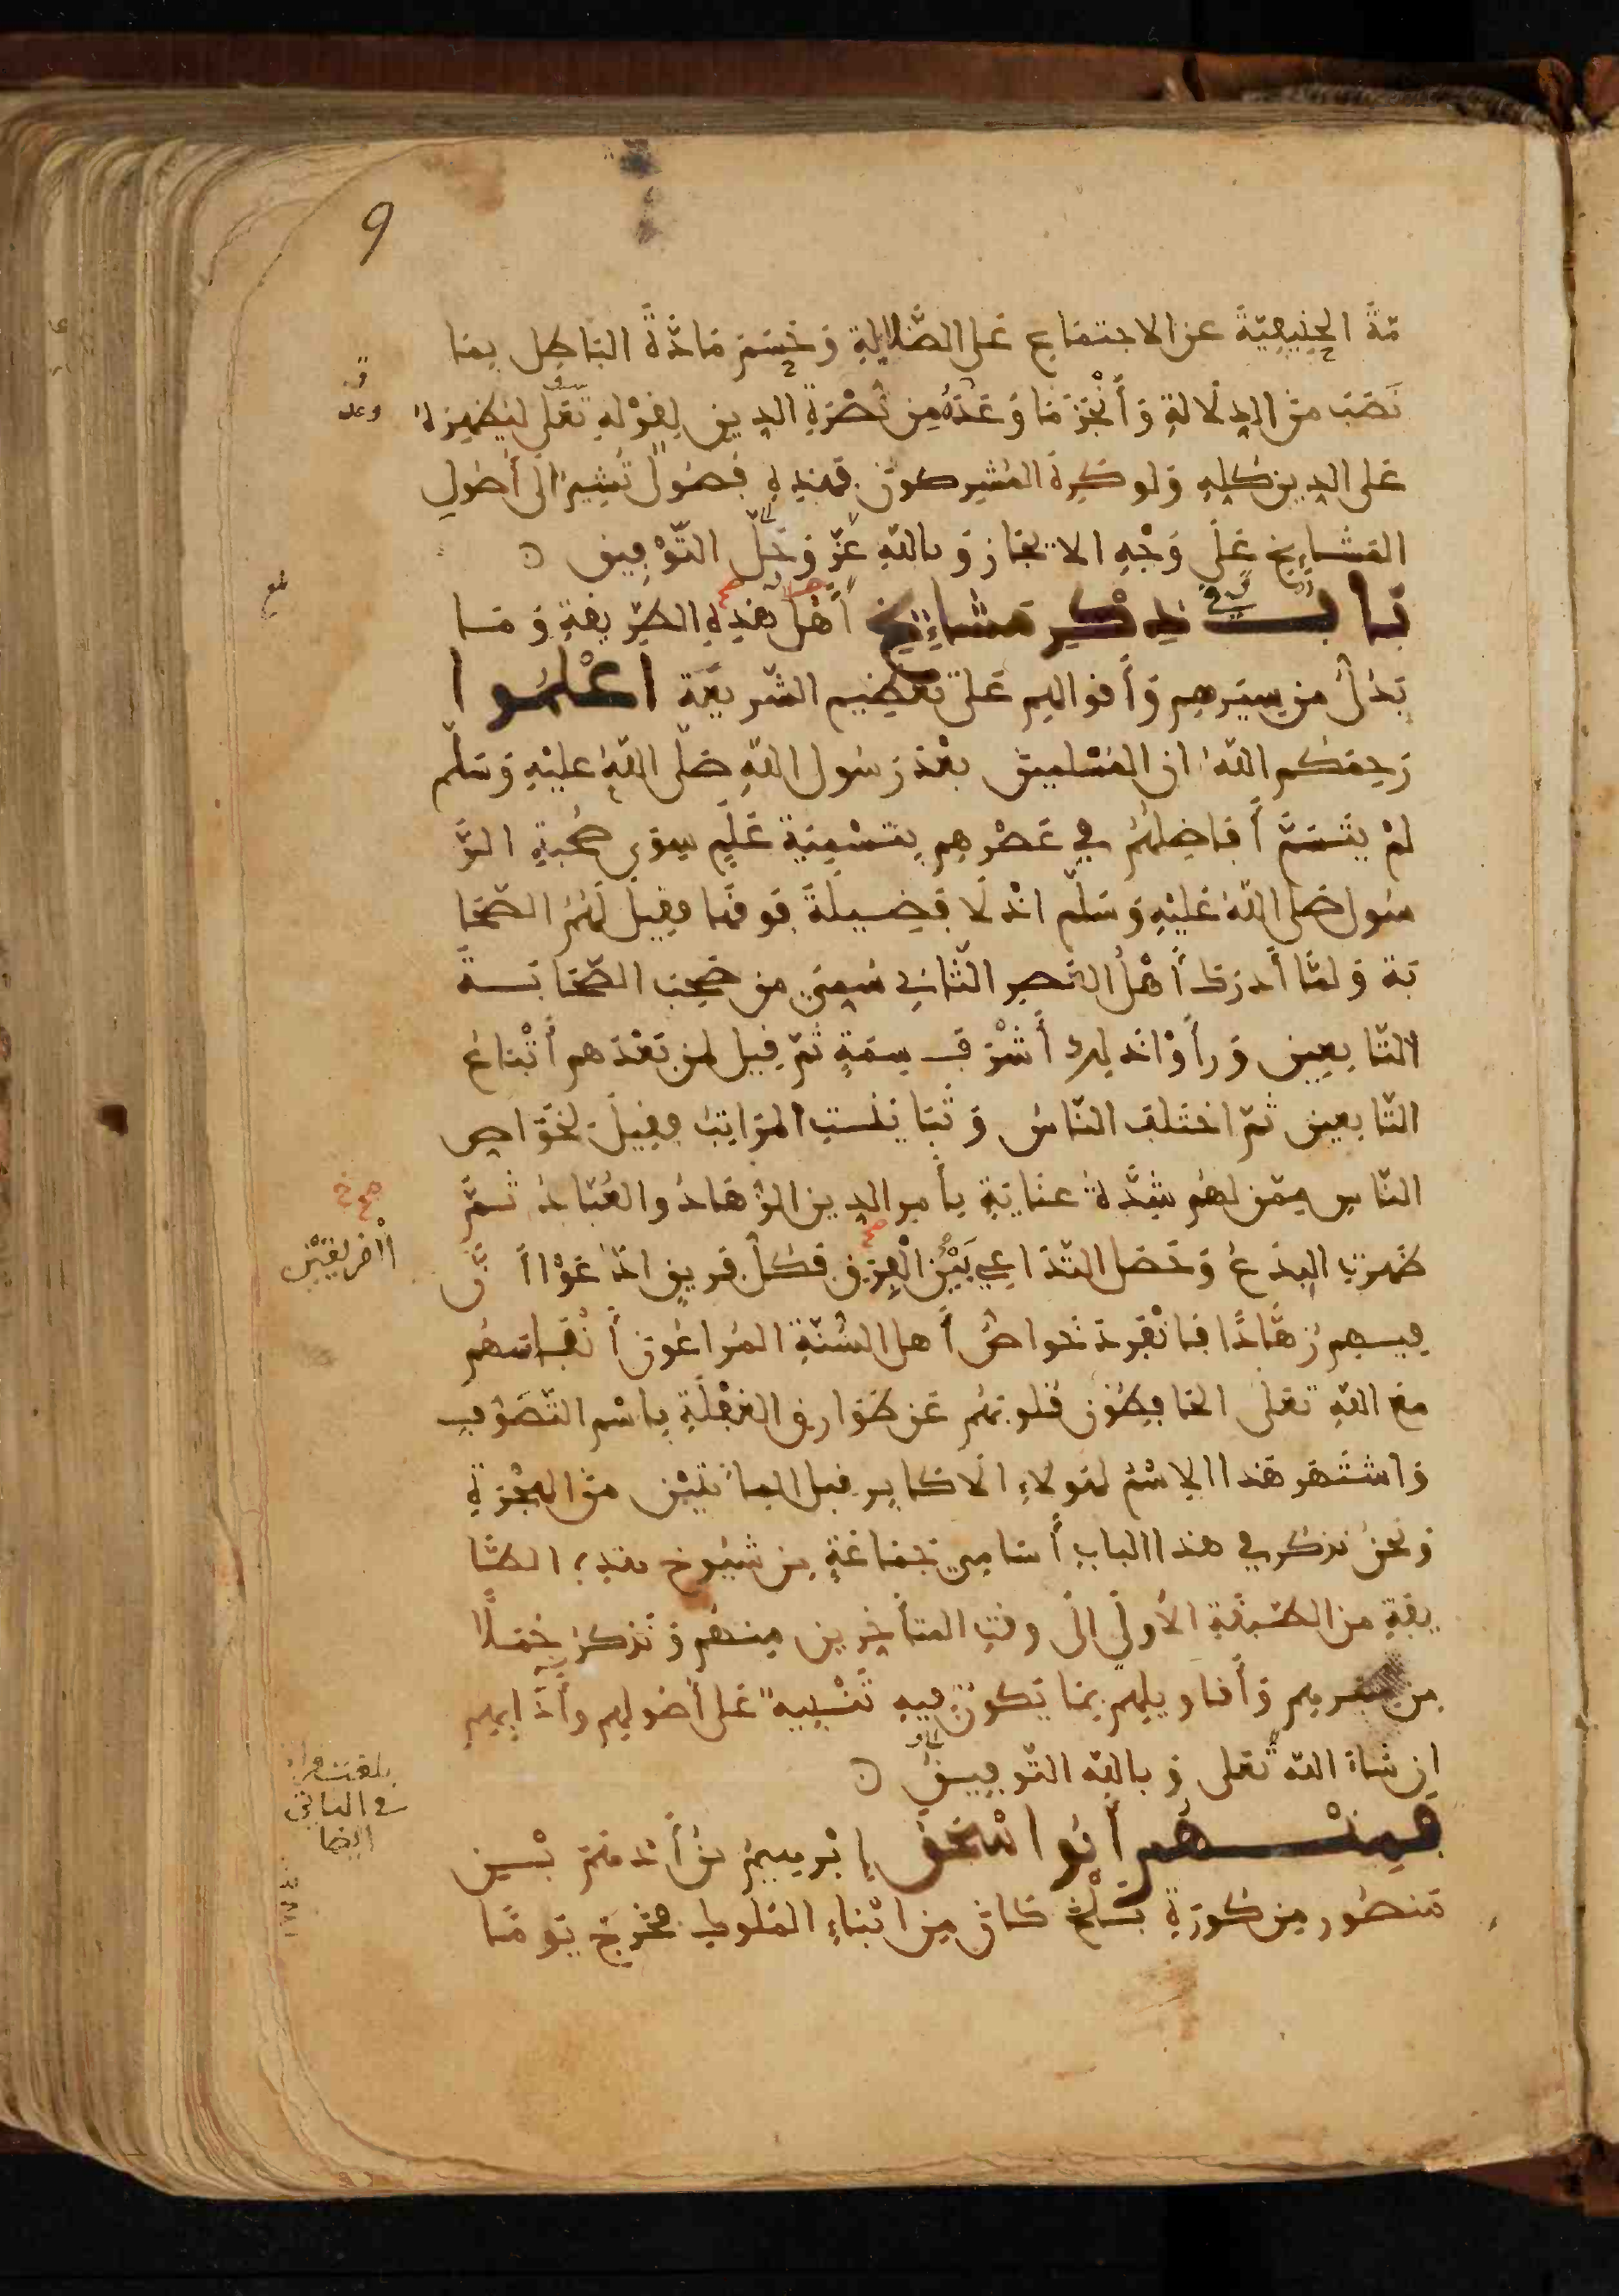 9
مّةَ الحنيفيّةَ عن الاجتماع على الضّلالةِ وَحَسَمَ مَادّةَ الباطل بما
نَصَبَ منَ الدلالةِ وَأَنْجَزَ مَا وَعَدَهُ مِن نُصْرَةِ الدين لِقَوْلِهِ تعلى ليظهرَهُ
وعد
عَلى الدين كلِّهِ وَلو كَرِهَ المُشركونَ فهذه فصُولٌ تُشيرُ الى أصُول
المشايخ عَلى وَجْهِ الايجاز وَبالله عزّ وَجَلّ التّوْفيق ه
بَاب في ذِكْرِ مَشايخِ أهْل هَذِهِ الطّريقةِ وَمَا
يَدُلّ من سِيَرِهِم وَأقوالهم عَلى تعظيم الشّريعَة اعْلَمُوا
رَحِمَكم اللهُ ان المُسْلمينَ بعْدَ رَسُول اللهِ صَلّى اللهُ عليْهِ وَسَلّم
لمْ يتَسَمَّ أفاضِلُهُمْ في عَصْرِهِم بِتَسْمِيَةِ عَلَمٍ سِوَى صُحْبةِ الرَّ
سُول صَلى اللهُ عَليْهِ وَسَلّم اذ لَا فَضِيلةَ فوقهَا فقيلَ لَهُمُ الصّحَا
بَة وَلمّا أدرَكَ أهْلُ العَصرِ الثّاني سُمِّيَ من صَحِبَ الصّحَابَةَ
التّابِعِين وَرأَوْا ذلِكَ أَشْرَفَ سِمَةٍ ثمّ قِيل لمن بَعْدَهم أتْبَاعَ
التّابعين ثمّ اختلفَ النّاسُ وَتبَاينَتِ المَرَاتِبُ فقيلَ لخَوَاص
النّاس ممّن لهُم شِدَّةُ عنَايَةٍ بأمر الدين الزُّهَادُ والعُبّادُ ثمَّ
ظَهَرَتِ البِدَعُ وَحَصَل التّدَاعِي بَيْنَ الْفِرَقِ فكلُّ فَريقٍ ادّعَوْا أَنَّ
الفريقَيْن
فيهِم زُهَّادًا فانفَردَ خَواصُّ أهل السُّنّةِ المُرَاعُونَ أنْفَاسَهُم
مَعَ اللهِ تعلى الحَافِظُونَ قُلوبَهُم عَن طَوَارقِ الغَفْلَةِ باسْم التّصَوُّفِ
وَاشْتَهَرَ هَذا الاسْمُ لهَؤلاءِ الأكابر قبل المِائَتَيْن منَ الهِجْرَةِ
وَنحنُ نذكر في هذا الباب أسَامِي جَمَاعَةٍ من شيُوخ هذه الطّا
يفةِ من الطّبَقةِ الأولى الى وقتِ المتأخِرين مِنهُم وَنَذكرُ جُمَلًا
من سِيَرهم وَأقاويلهم بمَا يَكونُ فيهِ تَنْبيهٌ عَلى أصُولهم وآدَابِهم
إن شَاءَ الله تعلى وَبالله التّوفيقُ ه
فمِنْهُم أبُو اسْحَقَ إبْرهيمُ بنُ أدهَمَ بْن
مَنصُور مِن كُورَةِ بَلْخَ كانَ مِن ابْناءِ المُلوك فَخَرَجَ يَومًا